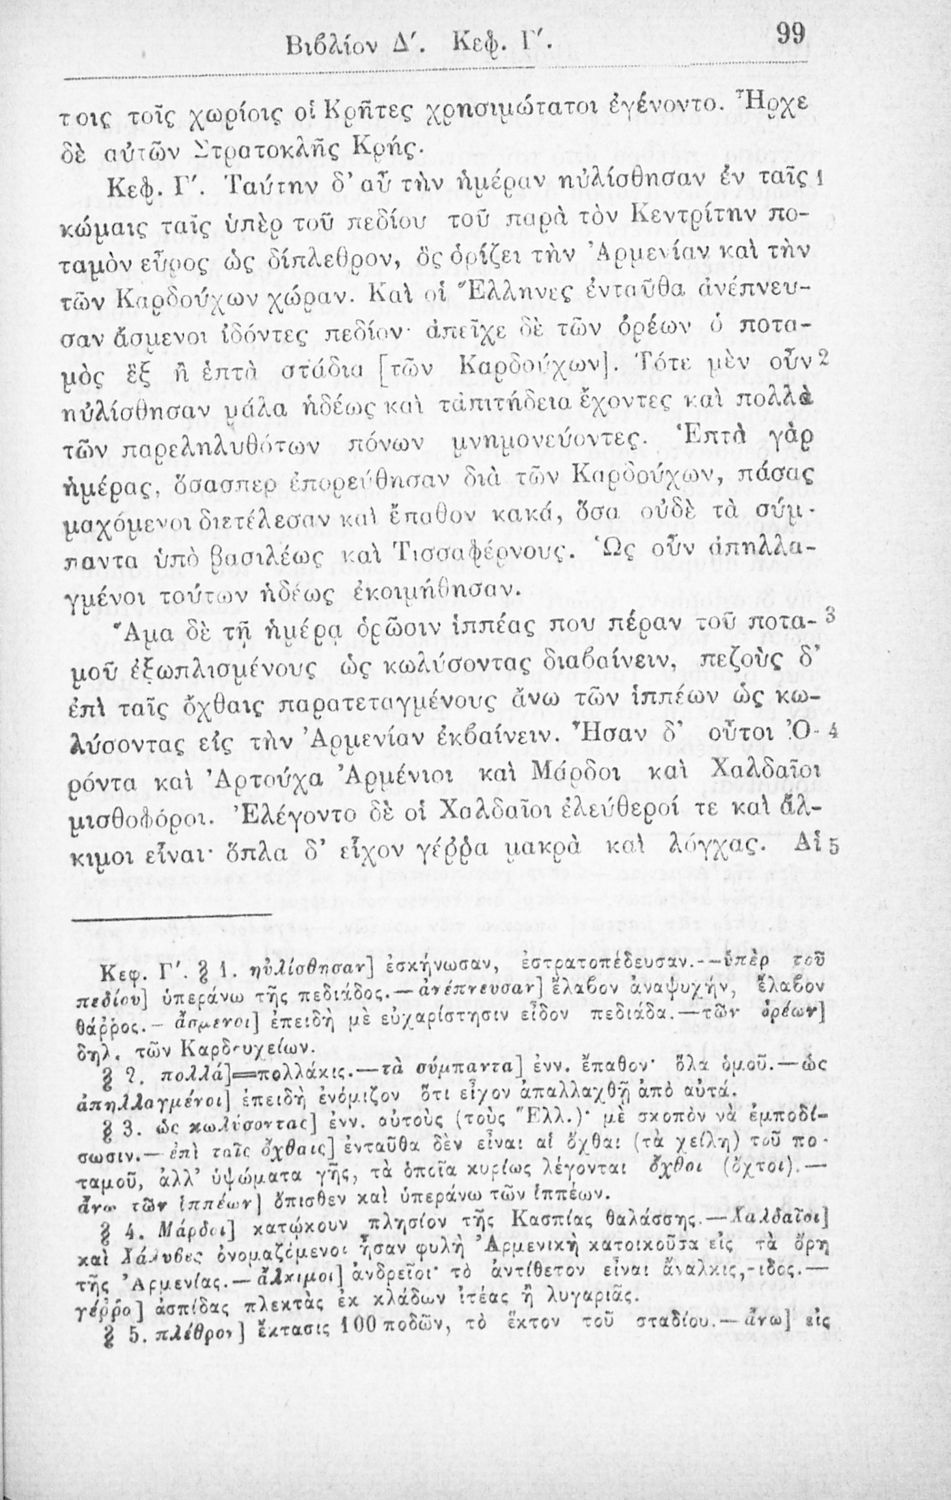 Βιβλίον Δʹ. Κεφ. Γʹ. 99
τοις τοῖς χωρίοις οἱ Κρῆτες χρησιμώτατοι ἐγένοντο. Ἦρχε
δὲ αὐτῶν Στρατοκλῆς Κρής.
Κεφ. Γʹ. Ταύτην δ' αὖ τὴν ἡμέραν ηὐλίσθησαν ἐν ταῖς 1
κώμαις ταῖς ὑπὲρ τοῦ πεδίου τοῦ παρὰ τὸν Κεντρίτην πο-
ταμὸν εὖρος ὡς δίπλεθρον, ὃς ὁρίζει τὴν Ἀρμενίαν καὶ τὴν
τῶν Καρδούχων χώραν. Καὶ οἱ Ἕλληνες ἐνταῦθα ἀνέπνευ-
σαν ἄσμενοι ἰδόντες πεδίον· ἀπεῖχε δὲ τῶν ὀρέων ὁ ποτα-
μὸς ἓξ ἢ ἑπτὰ στάδια [τῶν Καρδούχων]. Τότε μὲν οὖν 2
ηὐλίσθησαν μάλα ἡδέως καὶ τἀπιτήδεια ἔχοντες καὶ πολλὰ
τῶν παρεληλυθότων πόνων μνημονεύοντες. Ἑπτὰ γὰρ
ἡμέρας, ὅσασπερ ἐπορεύθησαν διὰ τῶν Καρδούχων, πάσας
μαχόμενοι διετέλεσαν καὶ ἔπαθον κακά, ὅσα οὐδὲ τὰ σύμ-
παντα ὑπὸ βασιλέως καὶ Τισσαφέρνους. Ὡς οὖν ἀπηλλα-
γμένοι τούτων ἡδέως ἐκοιμήθησαν.
Ἅμα δὲ τῇ ἡμέρᾳ ὁρῶσιν ἱππέας που πέραν τοῦ ποτα- 3
μοῦ ἐξωπλισμένους ὡς κωλύσοντας διαβαίνειν, πεζοὺς δ'
ἐπὶ ταῖς ὄχθαις παρατεταγμένους ἄνω τῶν ἱππέων ὡς κω-
λύσοντας εἰς τὴν Ἀρμενίαν ἐκβαίνειν. Ἦσαν δ' οὗτοι Ὀ- 4
ρόντα καὶ Ἀρτούχα Ἀρμένιοι καὶ Μάρδοι καὶ Χαλδαῖοι
μισθοφόροι. Ἐλέγοντο δὲ οἱ Χαλδαῖοι ἐλεύθεροί τε καὶ ἄλ-
κιμοι εἶναι· ὅπλα δ' εἶχον γέῤῥα μακρὰ καὶ λόγχας. Αἱ 5
Κεφ. Γʹ. § 1. ηὐλίσθησαν] ἐσκήνωσαν, ἐστρατοπέδευσαν.—ὑπὲρ τοῦ
πεδίου] ὑπεράνω τῆς πεδιάδος.—ἀνέπνευσαν] ἔλαβον ἀναψυχήν, ἔλαβον
θάῤῥος.—ἄσμενοι] ἐπειδὴ μὲ εὐχαρίστησιν εἶδον πεδιάδα.—τῶν ὀρέων]
δηλ. τῶν Καρδουχείων.
§ 2. πολλά]=πολλάκις.—τὰ σύμπαντα] ἐνν. ἔπαθον· ὅλα ὁμοῦ.—ὡς
ἀπηλλαγμένοι] ἐπειδὴ ἐνόμιζον ὅτι εἶχον ἀπαλλαχθῆ ἀπὸ αὐτά.
§ 3. ὡς κωλύσοντας] ἐνν. αὐτοὺς (τοὺς Ἕλλ.)· μὲ σκοπὸν νὰ ἐμποδί-
σωσιν.—ἐπὶ ταῖς ὄχθαις] ἐνταῦθα δὲν εἶναι αἱ ὄχθαι (τὰ χείλη) τοῦ πο-
ταμοῦ, ἀλλ' ὑψώματα γῆς, τὰ ὁποῖα κυρίως λέγονται ὄχθοι (ὄχτοι).—
ἄνω τῶν ἱππέων] ὄπισθεν καὶ ὑπεράνω τῶν ἱππέων.
§ 4. Μάρδοι] κατῴκουν πλησίον τῆς Κασπίας θαλάσσης.—Χαλδαῖοι]
καὶ Χάλυβες ὀνομαζόμενοι ἦσαν φυλὴ Ἀρμενικὴ κατοικοῦσα εἰς τὰ ὄρη
τῆς Ἀρμενίας.—ἄλκιμοι] ἀνδρεῖοι· τὸ ἀντίθετον εἶναι ἄναλκις,-ιδος.—
γέῤῥα] ἀσπίδας πλεκτὰς ἐκ κλάδων ἰτέας ἢ λυγαριᾶς.
§ 5. πλέθρον] ἔκτασις 100 ποδῶν, τὸ ἕκτον τοῦ σταδίου.—ἄνω] εἰς